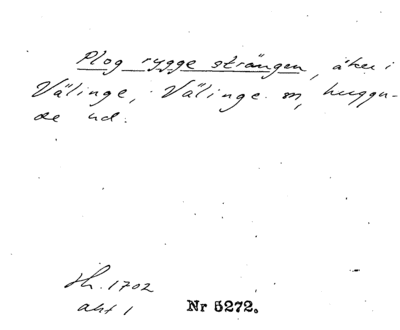 Plog rygge strängen, åker i
Välinge, Välinge sn, Luggu-
de hd.
Sk. 1702
akt 1
Nr 5272.